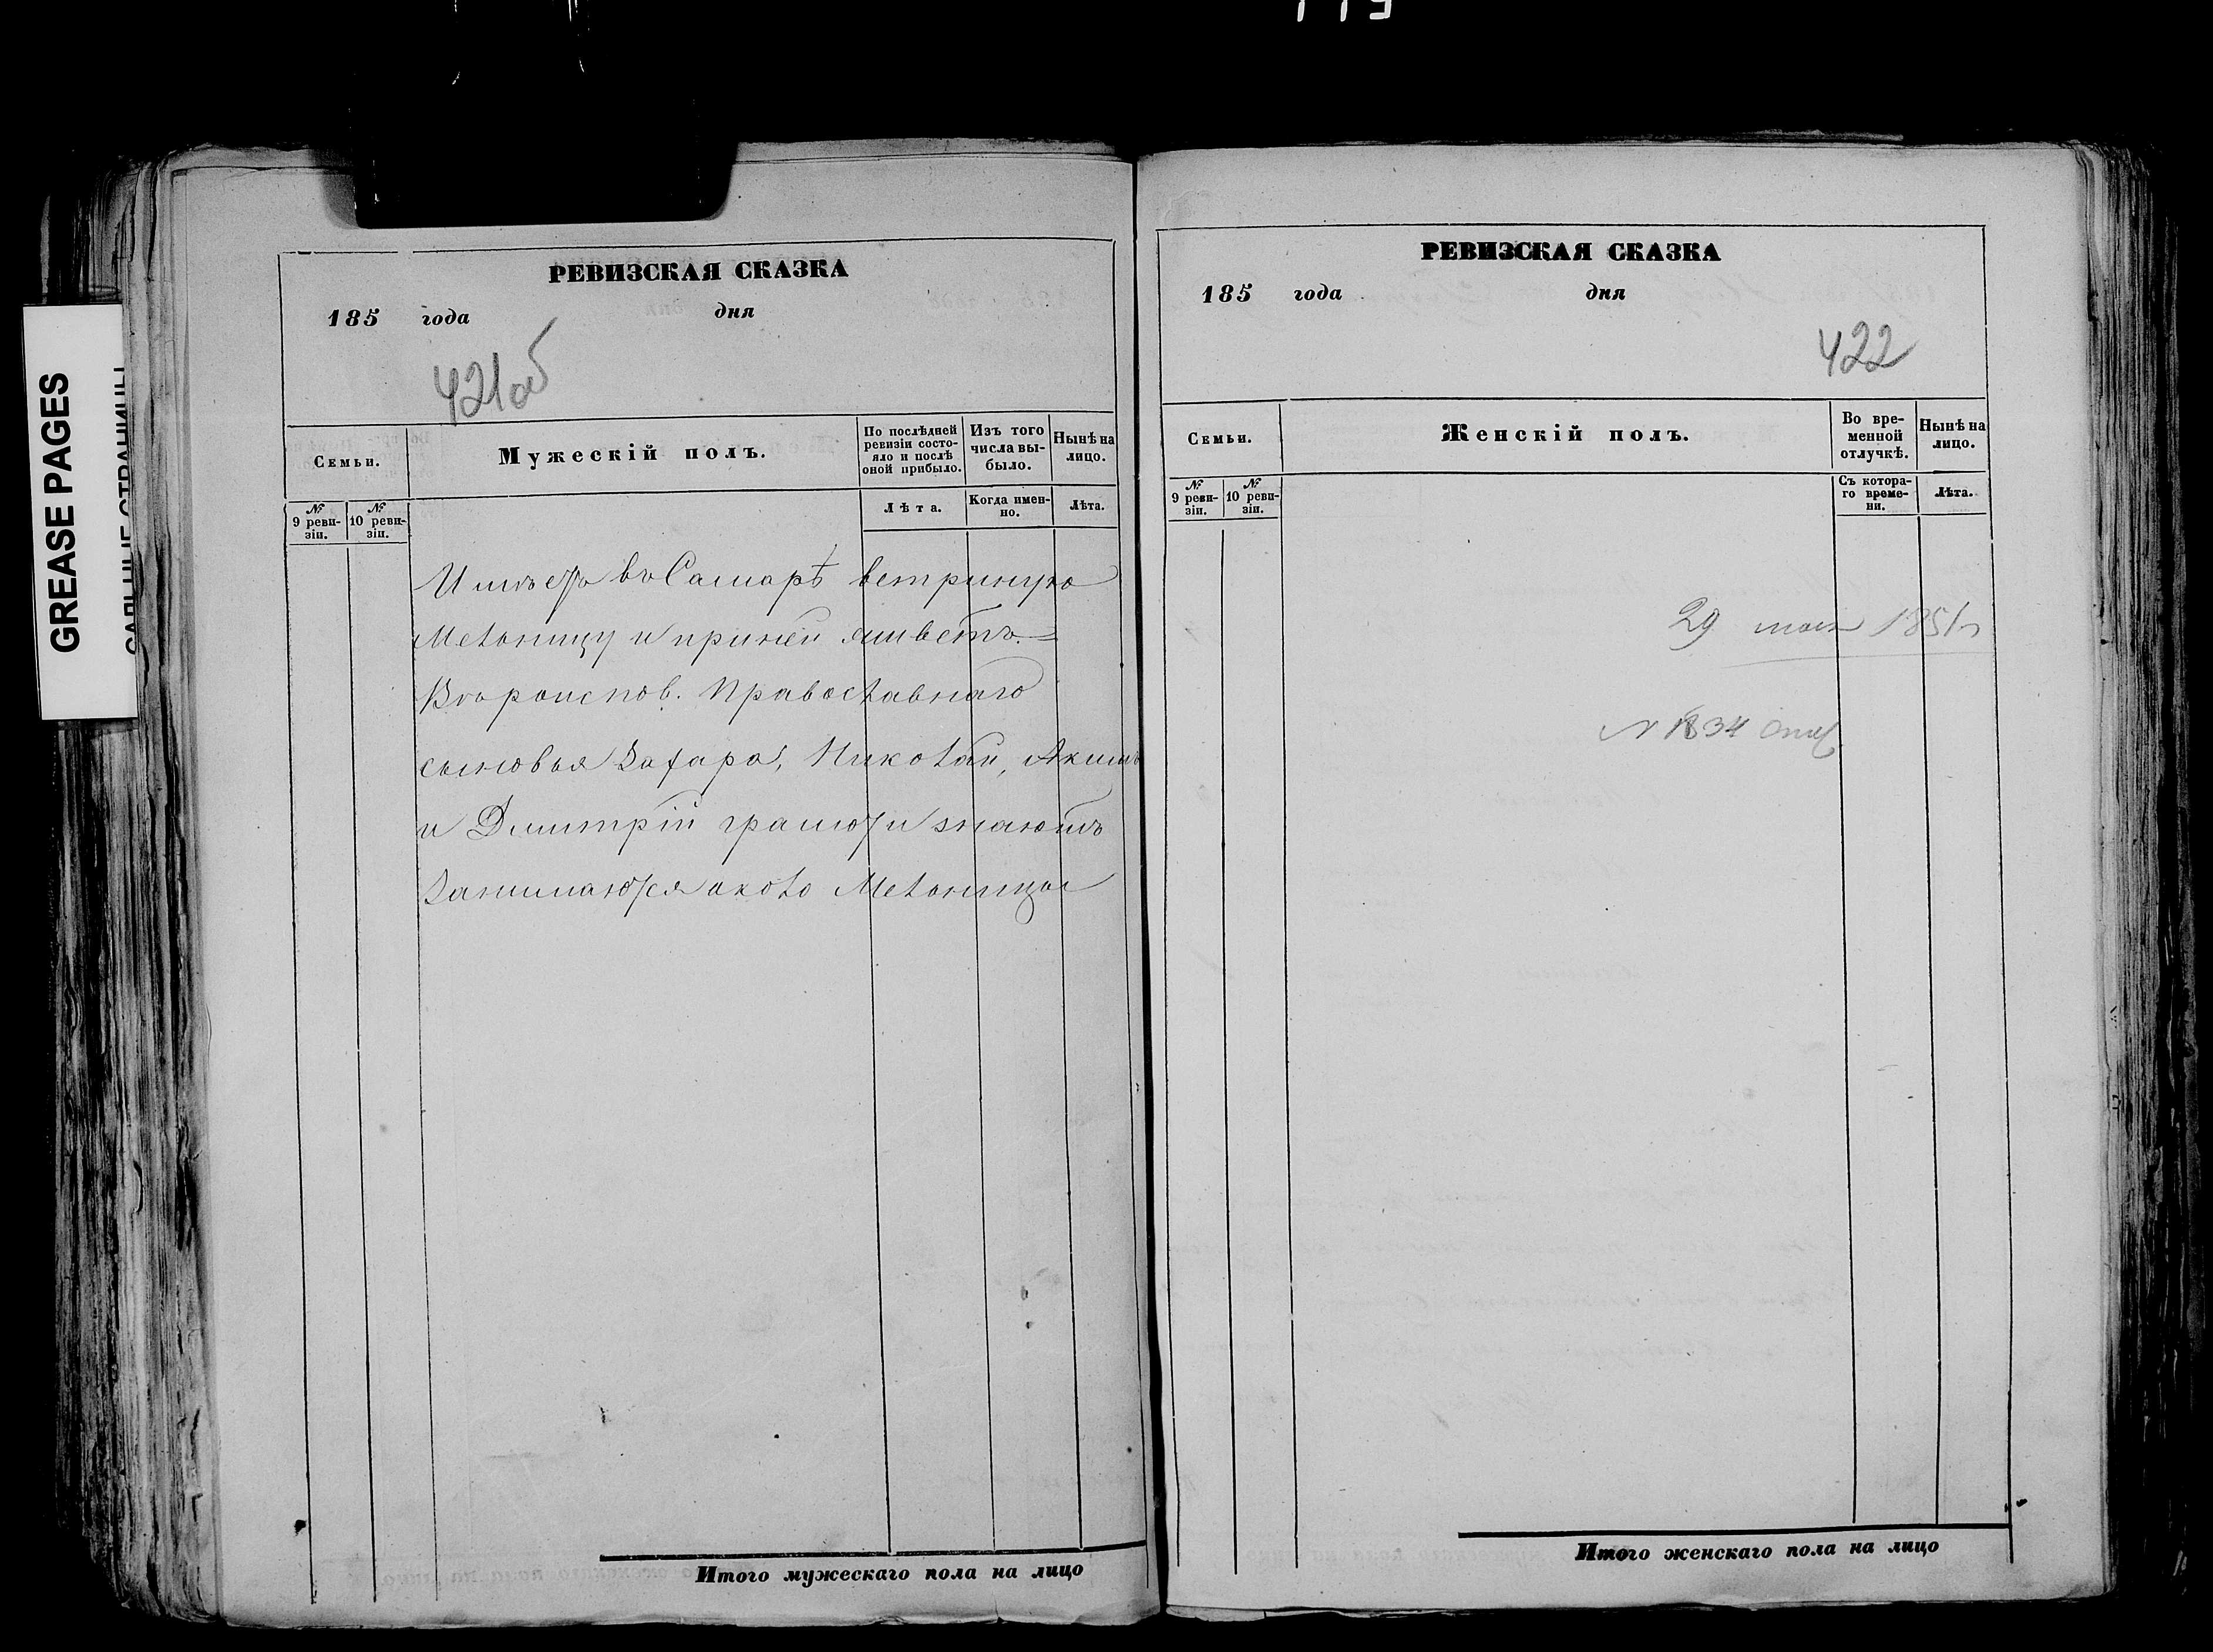 GREASE PAGES
САЛЬНЫЕ СТРАНИЦЫ
РЕВИЗСКАЯ СКАЗКА
185 года дня
421об
Семьи.
Мужескій полъ.
По послѣдней ревизіи состо-
яло и послѣ оной прибыло.
Изъ того числа вы-
было.
Нынѣ на лицо.
№ 9 реви-
зіи.
№ 10 реви-
зіи.
Лѣта.
Когда имен-
но.
Лѣта.
Имѣетъ въ Самарѣ ветрянную
Мельницу и при ней живетъ. =
Вѣроиспов. Православнаго
сыновья Захаръ, Николай, Акимъ
и Дмитрій грамоти знаютъ
Занимаются около Мельницы
Итого мужескаго пола на лицо
РЕВИЗСКАЯ СКАЗКА
185 года дня
422
Семьи.
Женскій полъ.
Во вре-
менной
отлучкѣ.
Нынѣ на
лицо.
№ 9 реви-
зіи.
№ 10 реви-
зіи.
Съ котора-
го време-
ни.
Лѣта.
29 мая 1851
N 1834
Итого женскаго пола на лицо